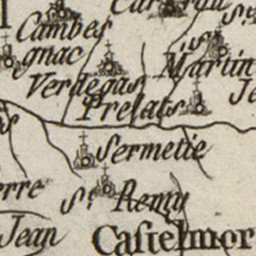 Cambes
gnac
Martin
Verdegas
Prelats
Sermetie
St Remy
Jean
Castelmor